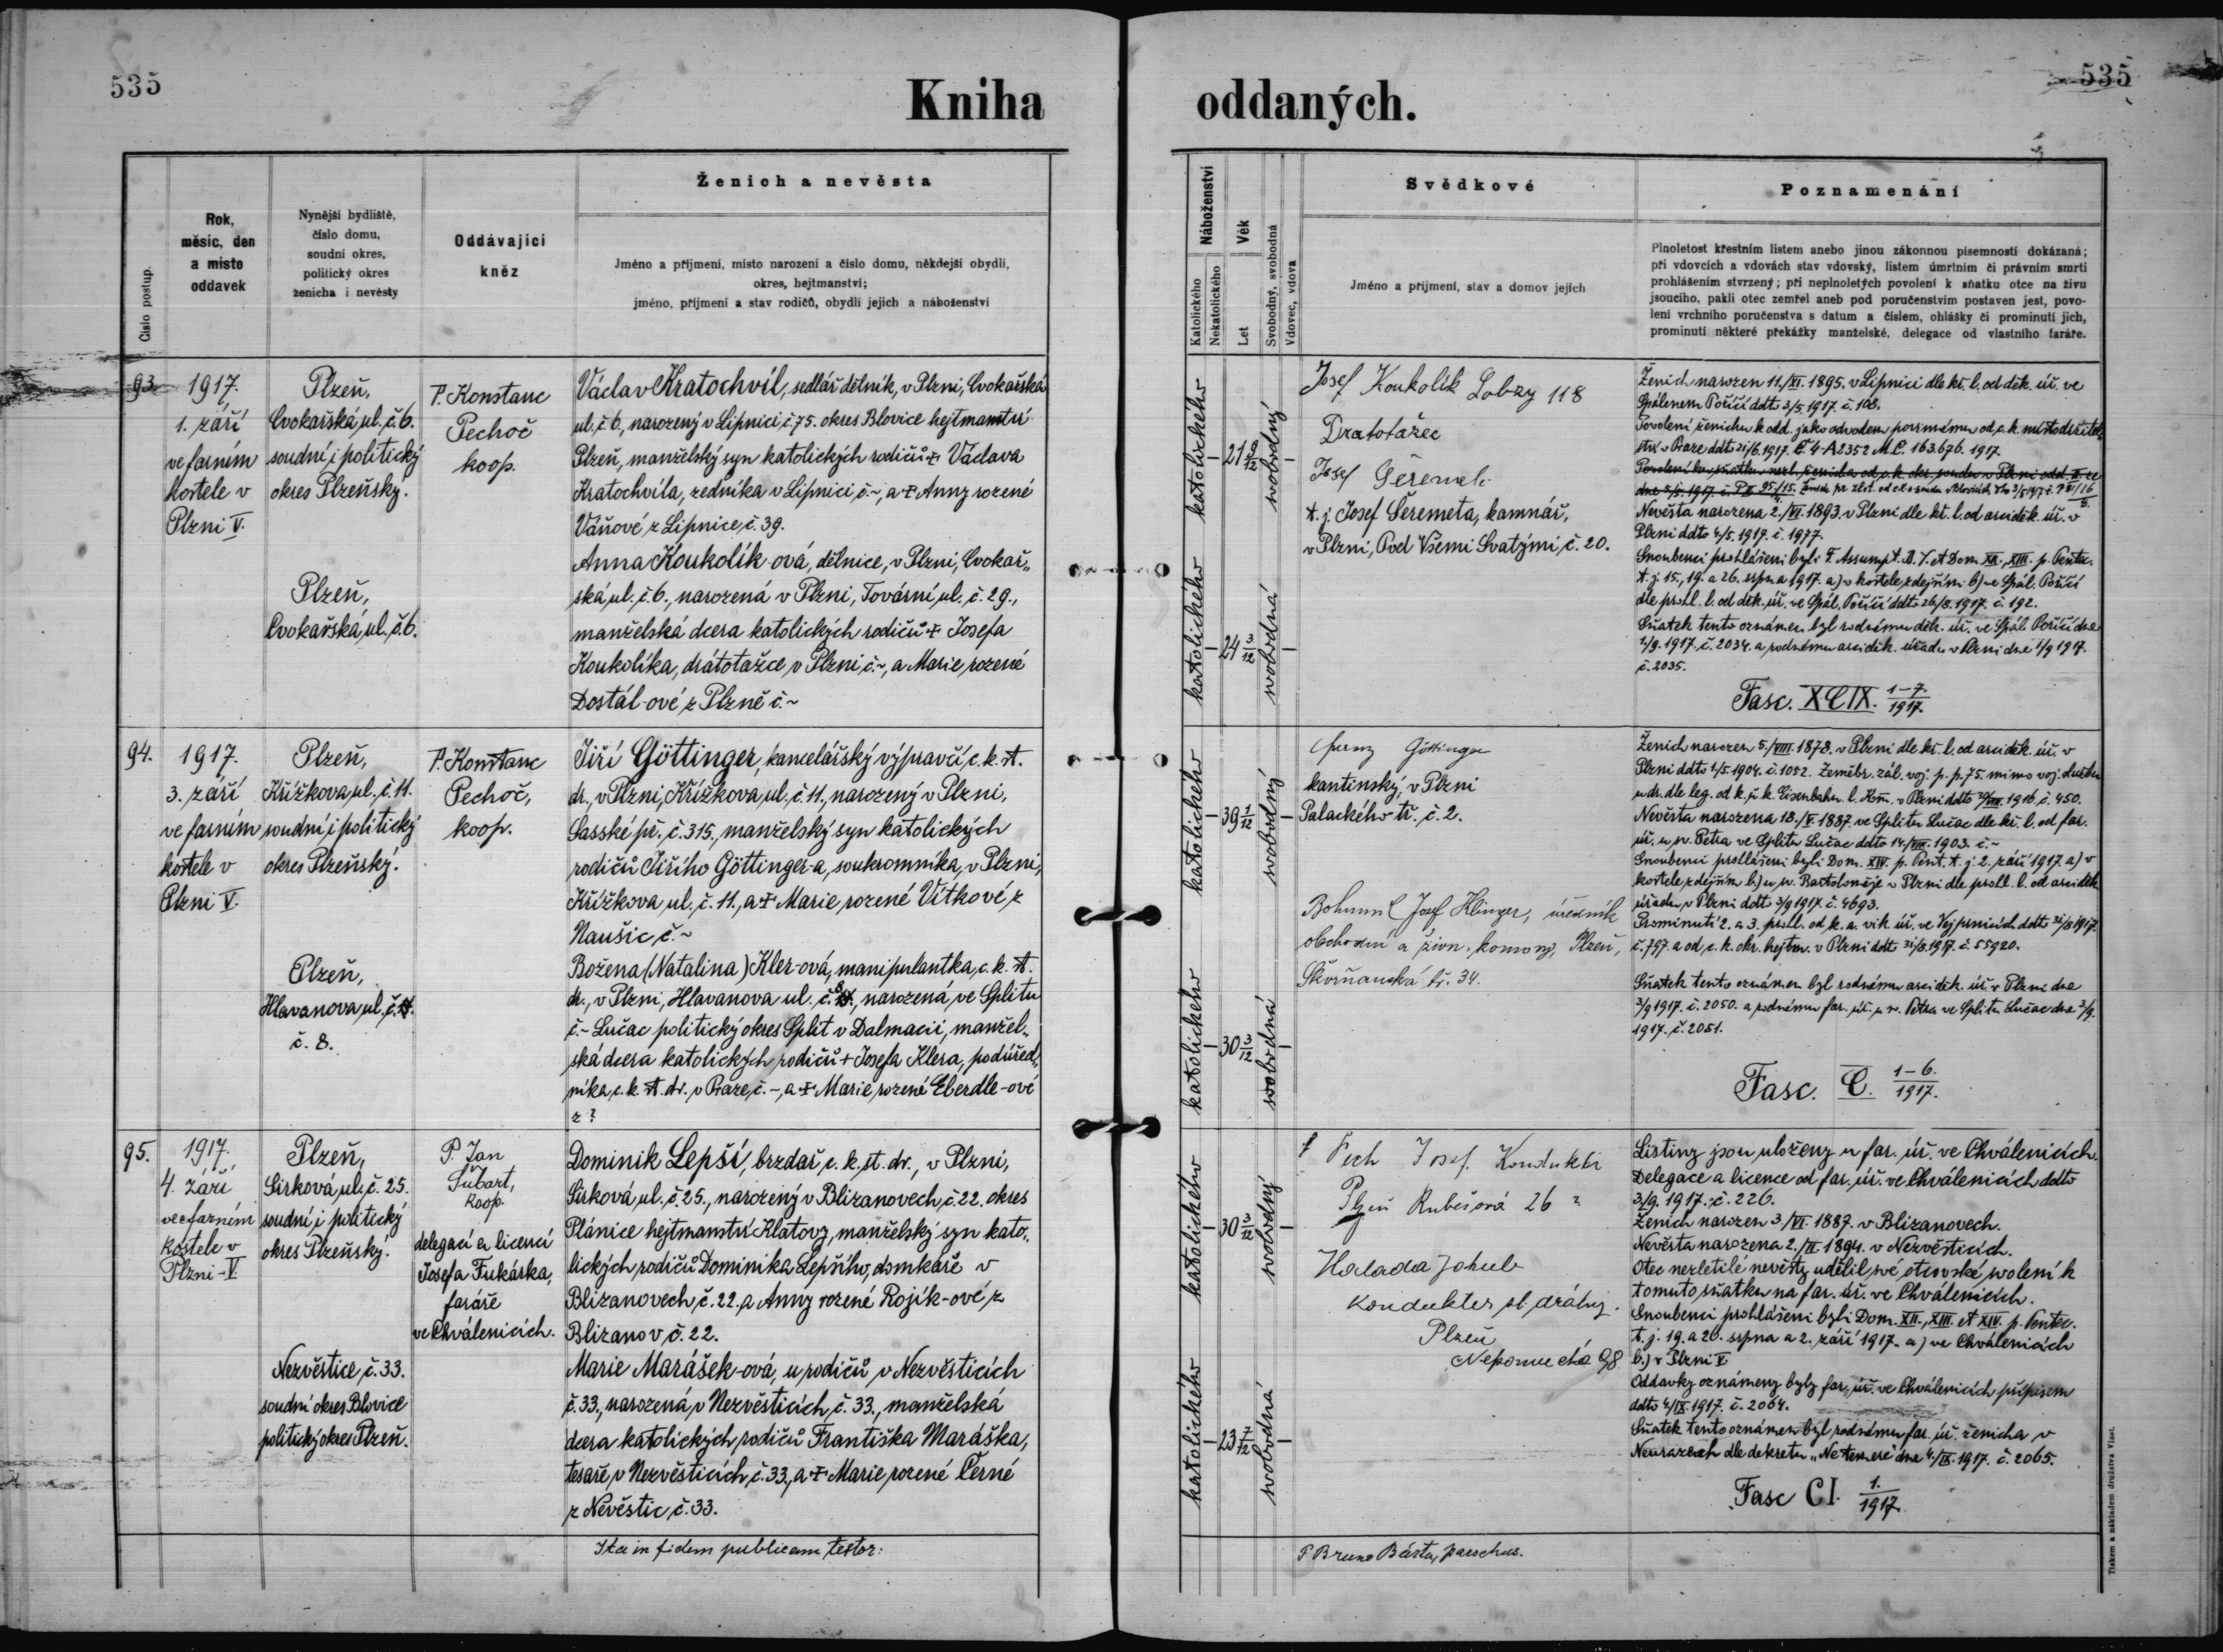 535
Kniha
Číslo postup.
Rok,
měsíc, den
a místo
oddavek
Nynější bydliště,
číslo domu,
soudní okres,
politický okres
ženicha i nevěsty
Oddávající
kněz
Ženich a nevěsta
Jméno a příjmení, místo narození a číslo domu, někdejší obydlí,
okres, hejtmanství;
jméno, příjmení a stav rodičů, obydlí jejich a náboženství
93.
1917.
1. září
ve farním
kostele v
Plzni V.
Plzeň,
Cvokařská ul. č. 6.
soudní i politický
okres Plzeňský.
Plzeň,
Cvokařská ul. č. 6.
P. Konstanc
Pechoč
koop.
Václav Kratochvíl, sedlář dělník, v Plzni, Cvokařská
ul. č. 6., narozený v Lipnici č. 75. okres Blovice hejtmanství
Plzeň, manželský syn katolických rodičů + Václava
Kratochvíla, zedníka v Lipnici č. ~, a + Anny rozené
Váňové z Lipnice č. 39.
Anna Koukolík-ová, dělnice, v Plzni, Cvokař„
ská ul. č. 6., narozená v Plzni, Tovární ul. č. 29.,
manželská dcera katolických rodičů + Josefa
Koukolíka, drátotažce v Plzni č. ~, a Marie rozené
Dostál-ové z Plzně č. ~
94.
1917.
3. září
ve farním
kostele v
Plzni V.
Plzeň,
Křížkova ul. č. 11.
soudní i politický
okres Plzeňský.
Plzeň,
Hlavanova ul. č.
č. 8.
P. Konstanc
Pechoč,
koop.
Jiří Göttinger, kancelářský výpravčí c. k. st.
dr., v Plzni, Křížkova ul. č. 11., narozený v Plzni,
Sasské př. č. 315, manželský syn katolických
rodičů Jiřího Göttinger-a, soukromníka, v Plzni,
Křížkova ul. č. 11., a + Marie rozené Vítkové z
Naušic č. ~
Božena (Natalina) Kler-ová, manipulantka c. k. st.
dr., v Plzni, Hlavanova ul. č. 8, narozená ve Splitu
č. ~ Lučac politický okres Split v Dalmacii, manžel„
ská dcera katolických rodičů + Josefa Klera, podúřed„
níka c. k. st. dr. v Praze č. ~, a + Marie rozené Eberdle-ové
z ?
95.
1917.
4. září
ve farním
kostele v
Plzni-V
Plzeň,
Sirková ul. č. 25.
soudní i politický
okres Plzeňský.
Nezvěstice č. 33.
soudní okres Blovice
politický okres Plzeň.
P. Jan
Šubart,
koop.
delegací a licencí
Josefa Fukárka,
faráře
ve Chválenicích.
Dominik Lepší, brzdař c. k. st. dr., v Plzni,
Sirková ul. č. 25., narozený v Blizanovech č. 22. okres
Plánice hejtmanství Klatovy, manželský syn kato„
lických rodičů Dominika Lepšího, domkáře v
Blizanovech č. 22. a Anny rozené Rojík-ové z
Blizanov č. 22.
Marie Marášek-ová, u rodičů v Nezvěsticích
č. 33., narozená v Nezvěsticích č. 33., manželská
dcera katolických rodičů Františka Maráška,
tesaře v Nezvěsticích č. 33., a + Marie rozené Černé
z Nevěstic č. 33.
Ita in fidem publicam testor:
535
oddaných.
Náboženství
Katolického
Nekatolického
Věk
Let
Svobodný, svobodná
Vdovec, vdova
Svědkové
Jméno a příjmení, stav a domov jejich
Poznamenání
Plnoletost křestním listem anebo jinou zákonnou písemností dokázaná;
při vdovcích a vdovách stav vdovský, listem úmrtním či právním smrti
prohlášením stvrzený; při neplnoletých povolení k sňatku otce na živu
jsoucího, pakli otec zemřel aneb pod poručenstvím postaven jest, povo-
lení vrchního poručenstva s datum a číslem, ohlášky či prominutí jich,
prominutí některé překážky manželské, delegace od vlastního faráře.
katolického – 21 9/12 svobodný –
katolického – 24 3/12 svobodná –
Josef Koukolík Lobzy 118
Dratotažec
Josef Šeremeta
t. j. Josef Šeremeta, kamnář,
v Plzni, Pod Všemi Svatými č. 20.
Ženich narozen 11./XI. 1895. v Lipnici dle kř. l. od děk. úř. ve
Spáleném Poříčí ddto 3/5. 1917. č. 108.
Povolení ženichu k odd. jako odvodem povinnému od c. k. místodržitel„
ství v Praze ddto 21/6. 1917. č. 4-A 2352 M. č. 163.696. 1917.
Nevěsta narozena 2./VI. 1893. v Plzni dle kř. l. od arciděk. úř. v
Plzni ddto 4/5. 1917. č. 1977.
Snoubenci prohlášeni byli F. Assumpt. B. V. et Dom. XII., XIII. p. Pentec.
t. j. 15., 19. a 26. srpna 1917. a) v kostele zdejším b) ve Spál. Poříčí
dle prohl. l. od děk. úř. ve Spál. Poříčí ddto 26/8. 1917. č. 192.
Sňatek tento oznámen byl rodnému děk. úř. ve Spál. Poříčí dne
1/9. 1917. č. 2034. a rodnému arciděk. úřadu v Plzni dne 1/9 1917.
č. 2035.
Fasc. XCIX. 1-7./1917.
katolického – 39 1/12 svobodný –
katolického – 30 3/12 svobodná –
Göttinger
kantinský, v Plzni
Palackého tř. č. 2.
Bohumil Josef Klinger, úředník
obchodní a živn. komory, Plzeň,
Skvrňanská tř. 34.
Ženich narozen 5./VIII. 1878. v Plzni dle kř. l. od arciděk. úř. v
Plzni ddto 1/5. 1904. č. 1052. Zeměbr. zál. voj. p. p. 75. mimo voj. službu
u dr. dle leg. od k. u. k. Eisenbahn. l. Kom. v Plzni ddto 20/VIII. 1916. č. 450.
Nevěsta narozena 18./V. 1887. ve Splitu Lučac dle kř. l. od far.
úř. u sv. Petra ve Splitu Lučac ddto 14/VIII. 1903. č. ~
Snoubenci prohlášeni byli Dom. XIV. p. Pent. t. j. 2. září 1917. a) v
kostele zdejším b) u sv. Bartoloměje v Plzni dle prohl. l. od arciděk.
úřadu v Plzni ddto 3/9 1917. č. 4693.
Prominutí 2. a 3. prohl. od k. a. vik. úř. ve Vejprnicích ddto 31/8 1917.
č. 797. a od c. k. okr. hejtm. v Plzni ddto 31/8. 1917. č. 55920.
Sňatek tento oznámen byl rodnému arciděk. úř. v Plzni dne
3/9 1917. č. 2050. a rodnému far. úř. u sv. Petra ve Splitu Lučac dne 3/9.
1917. č. 2051.
Fasc. C. 1-6./1917.
katolického – 30 3/12 svobodný –
katolického – 23 7/12 svobodná –
Pech Josef. Konduktér
Plzeň Rubešová 26
Halada Jakub
Kondukter st. dráhy.
Plzeň
Nepomucká 98
Listiny jsou uloženy u far. úř. ve Chválenicích.
Delegace a licence od far. úř. ve Chválenicích ddto
3/9. 1917. č. 226.
Ženich narozen 3./VI. 1887. v Blizanovech.
Nevěsta narozena 2./II. 1894. v Nezvěsticích.
Otec nezletilé nevěsty udělil své otcovské svolení k
tomuto sňatku na far. úř. ve Chválenicích.
Snoubenci prohlášeni byli Dom. XII., XIII. et XIV. p. Pentec.
t. j. 19. a 26. srpna a 2. září 1917. a) ve Chválenicích
b.) v Plzni V.
Oddavky oznámeny byly far. úř. ve Chválenicích přípisem
ddto 4/IX. 1917. č. 2064.
Sňatek tento oznámen byl rodnému far. úř. ženicha v
Neurazech dle dekretu „Ne temere" dne 4./IX. 1917. č. 2065.
Fasc CI. 1./1917.
P Bruno Bárta, parochus.
Tiskem a nákladem družstva Vlast.